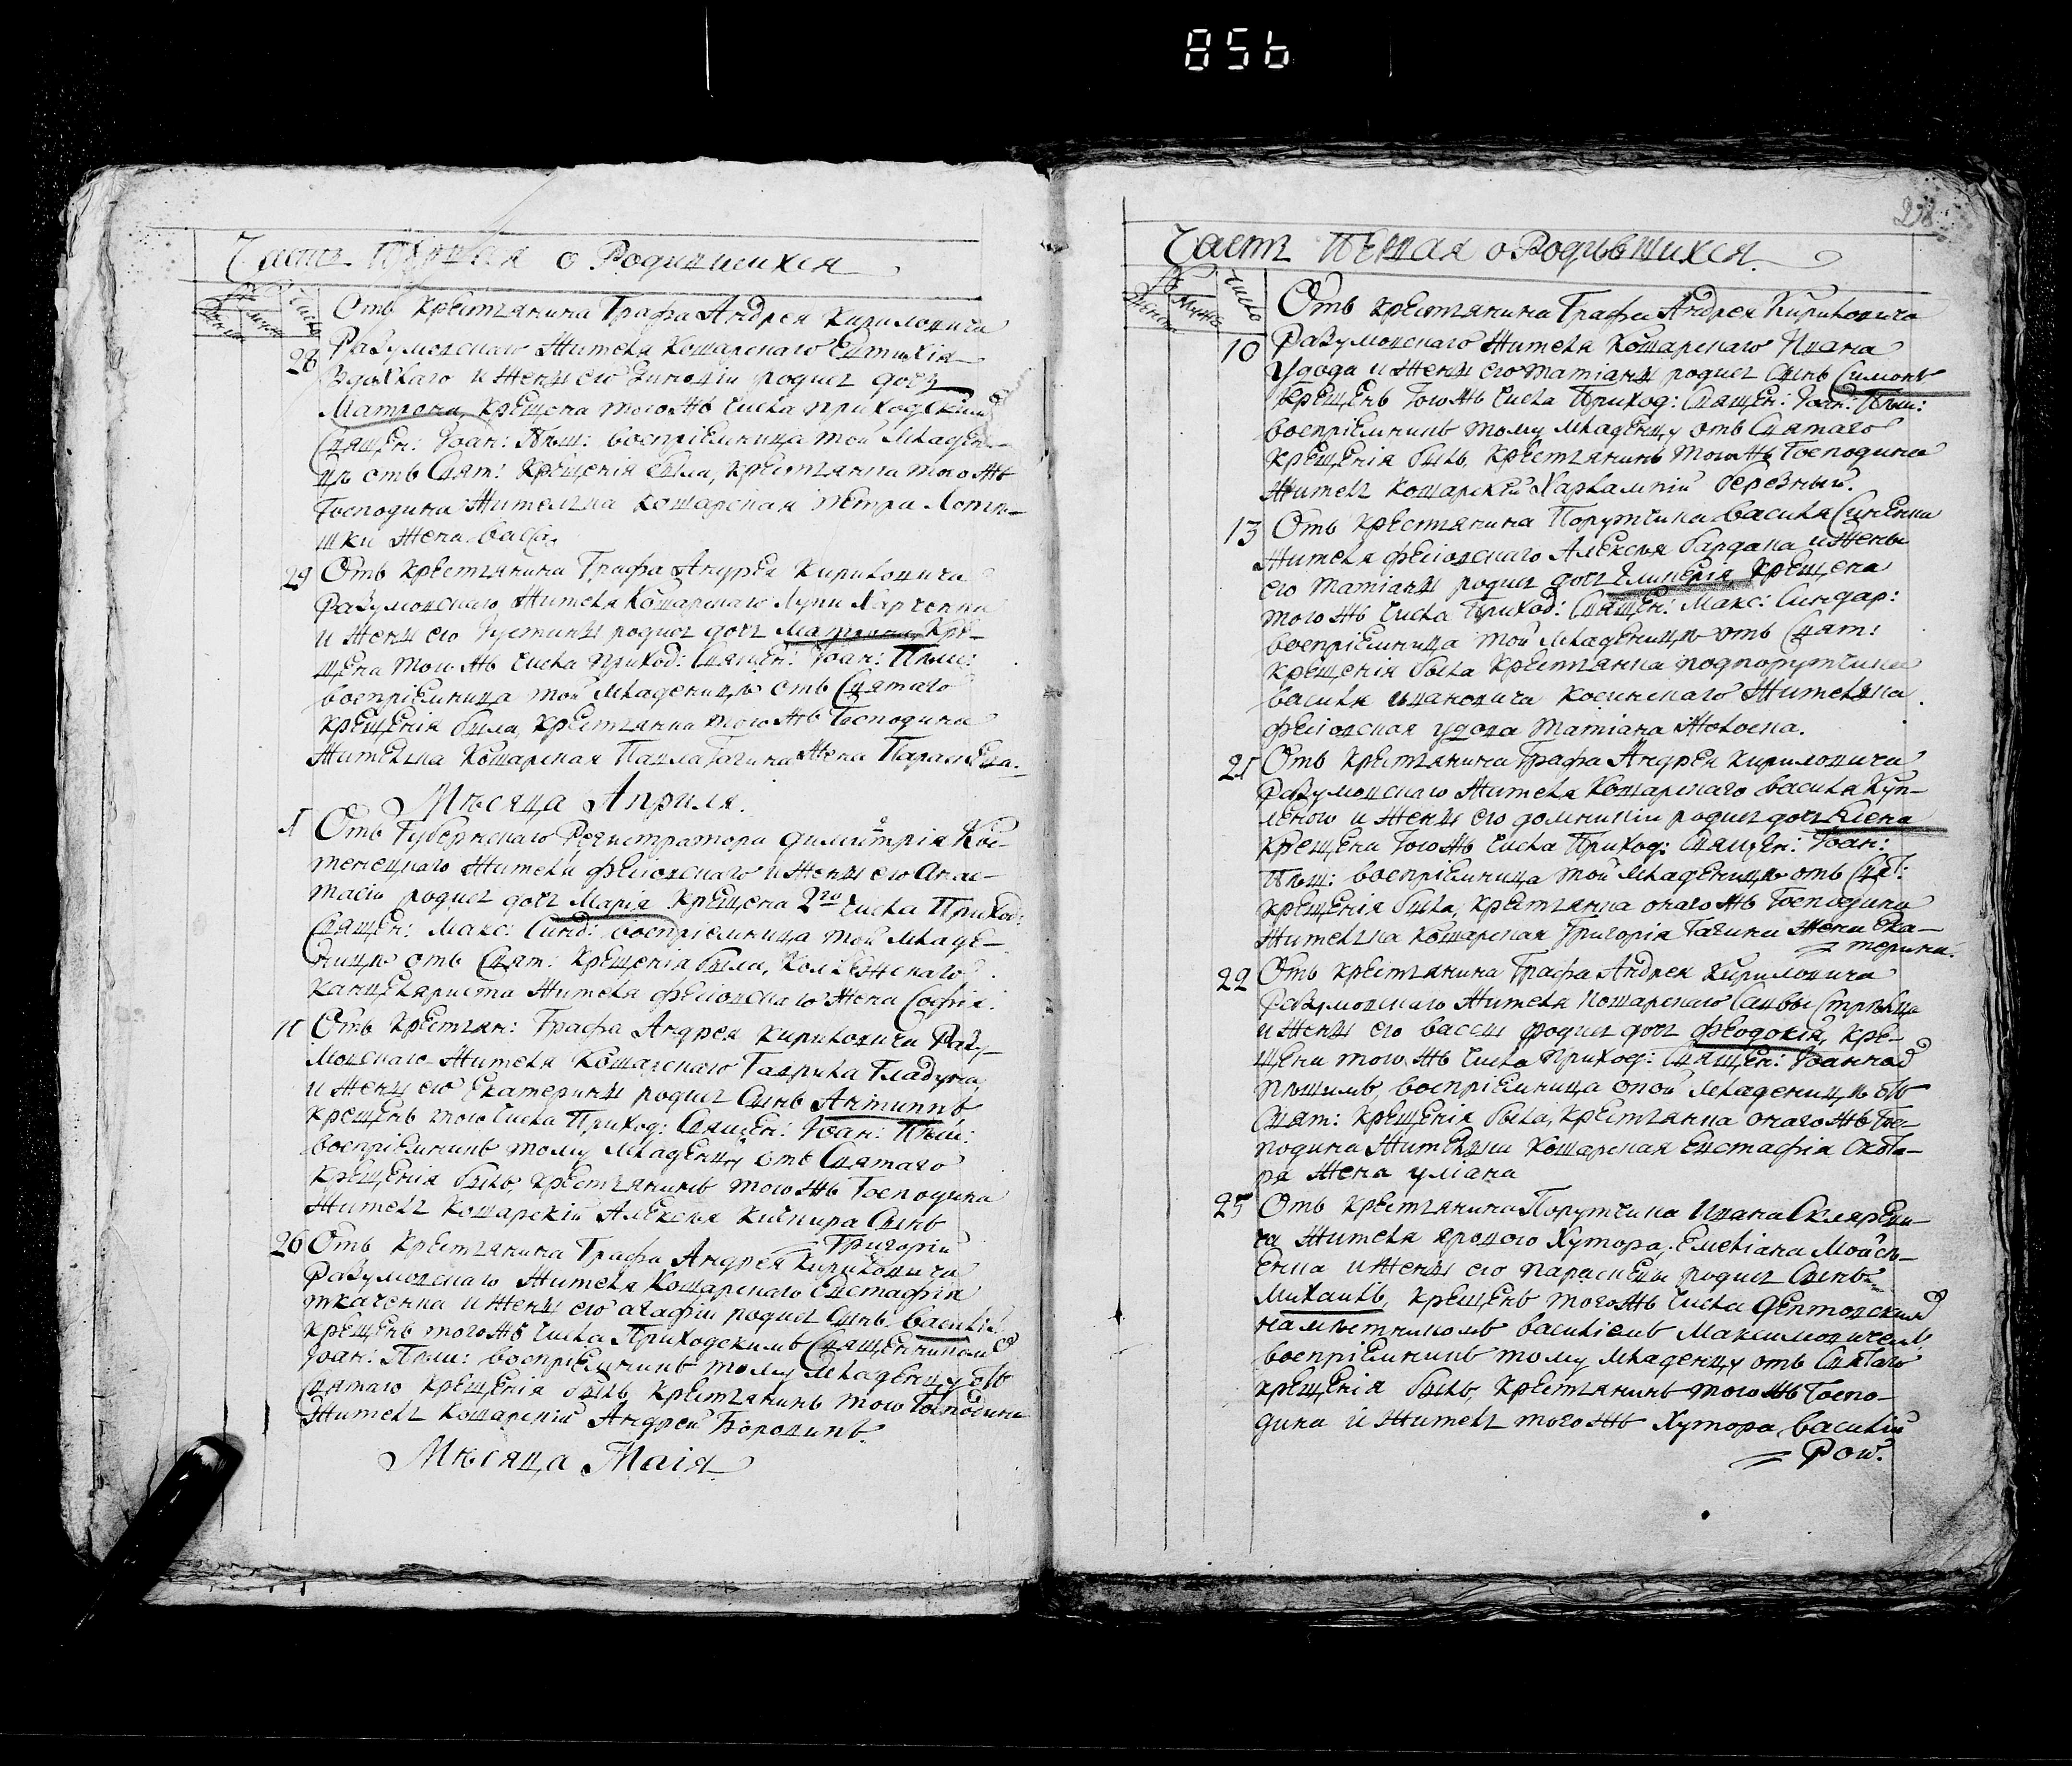 856
Часть Первая о Родившихся
Число
Отъ крестьянина Графа Андрея Кириловича
28 Разумовскаго жителя Кошарскаго Евтихія
и жены его Зиновіи родися дочь
Матрона, крещена того жъ числа приходскимъ
Священ: Іоан: Пѣш: воспріемница той младен-
цѣ отъ Свят: крещенія была, крестьянка того жъ
Господина жителька кошарская Петра
жена Васса.
29 Отъ крестьянина Графа Андрея Кириловича
Разумовскаго жителя Кошарскаго Луки Харченка
и жены его Іустины родися дочь Матрона кре-
щена того жъ числа приход: Священ: Іоан: Пѣш:
воспріемница той младеницѣ отъ Святаго
крещенія была, крестьянка того жъ Господина
жителька Кошарская Павла Гагина жена Параскева.
Мѣсяца Априля.
1 Отъ Губернскаго Регистратора Димитрія
жителя феіовскаго и жены его Анас-
тасіи родися дочь Марія крещена 2го числа Приход:
Священ: Макс: Синд: воспріемница той младе-
ницѣ отъ Свят: крещенія была, Коллежскаго
канцеляриста жителя феіовскаго жена Софія.
11 Отъ крестьян: Графа Андрея Кириловича Разу-
мовскаго жителя Кошарскаго Гаврила Гладуна
и жены его Екатерины родися сынъ Антипъ
крещенъ того числа Приход: Священ: Іоан: Пѣш:
воспріемникъ тому младенцу отъ Святаго
крещенія былъ, крестьянинъ того жъ Господина
житель Кошарскій Алексѣя сынъ
Григорій
26 Отъ крестьянина Графа Андрея Кириловича
Разумовскаго жителя Кошарскаго Евстафія
ткаченка и жены его Агафіи родися сынъ Василій
крещенъ того жъ числа Приходскимъ Священникомъ
Іоан: Пѣш: воспріемникъ тому младенцу отъ
Святаго крещенія былъ, крестьянинъ того Господина
житель Кошарскій Андрей
Мѣсяца Маія
Часть Первая о Родившихся
Число
Отъ крестьянина Графа Андрея Кириловича
10 Разумовскаго жителя Кошарскаго Ивана
Удода и жены его татіаны родися сынъ Симонъ
крещенъ того жъ числа Приход: Священ: Іоан: Пѣш:
воспріемникъ тому младенцу отъ Святаго
крещенія былъ, крестьянинъ того жъ Господина
житель Кошарскій Харлампій березный.
13 Отъ крестьянина Порутчика Василя Синенка
жителя феіовскаго Алексѣя бардака и жены
его татіаны родися дочь Гликерія крещена
того жъ числа Приход: Священ: Макс: Синдар:
воспріемница той младеницѣ отъ Свят:
крещенія была крестьянка подпорутчика
Василя ивановича косинскаго жителька
феіовская удова татіана
21 Отъ крестьянина Графа Андрея Кириловича
Разумовскаго жителя Кошарскаго Василя
и жены его домникіи родися дочь Елена
крещена того жъ числа Приход: Священ: Іоан:
Пѣш: воспріемница той младеницѣ отъ Свят:
крещенія была, крестьянка онаго жъ Господина
жителька Кошарская Григорія Гагина жена Ека-
терина.
22 Отъ крестьянина Графа Андрея Кириловича
Разумовскаго жителя Кошарскаго Саввы Стрѣльца
и жены его вассы родися дочь Феодосія, кре-
щена того жъ числа приход: Священ: Іоанномъ
Пѣшимъ, воспріемница оной младеницѣ отъ
Свят: крещенія была, крестьянка онаго жъ Гос-
подина жителька Кошарская Евстафія
жена уліана
25 Отъ крестьянина Порутчика Ивана Скляреви-
ча жителя ярового Хутора, Емеліана Мойсѣ-
енка и жены его параскевы родися сынъ
Михаилъ, крещенъ того жъ числа
намѣстникомъ Василіемъ Максимовичемъ
воспріемникъ тому младенцу отъ Святаго
крещенія былъ, крестьянинъ того жъ Госпо-
дина и житель того жъ Хутора Василій